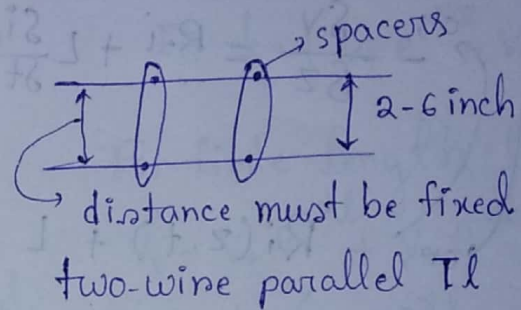 spacers
2-6 inch
distance must be fixed
two-wire parallel Tl